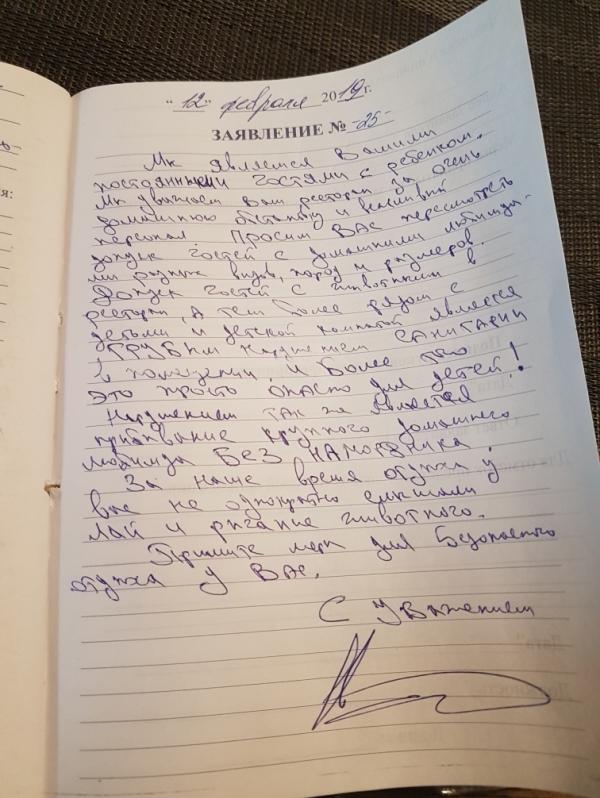 "12" февраля 2019 г.
ЗАЯВЛЕНИЕ № -25-
Мы являемся Вашими
постоянными гостями с ребенком.
Мы уважаем Ваш ресторан за очень
домашнюю обстановку и вежливый
персонал. Просим ВАС пересмотреть
допуск гостей с домашними любимца-
ми разных видов, пород и размеров.
Допуск гостей с животными в
ресторан, а тем более рядом с
детьми и детской комнатой является
ГРУБЫМ нарушением САНИТАРИИ
в помещении, и более того
это просто опасно для детей!
Нарушением так же является
прибывание крупного домашнего
любимца БЕЗ НАМОРДНИКА.
За наше время отдыха у
вас не однократно слышали
лай и рычание животного.
Примите меры для безопасного
отдыха у ВАС.
С уважением